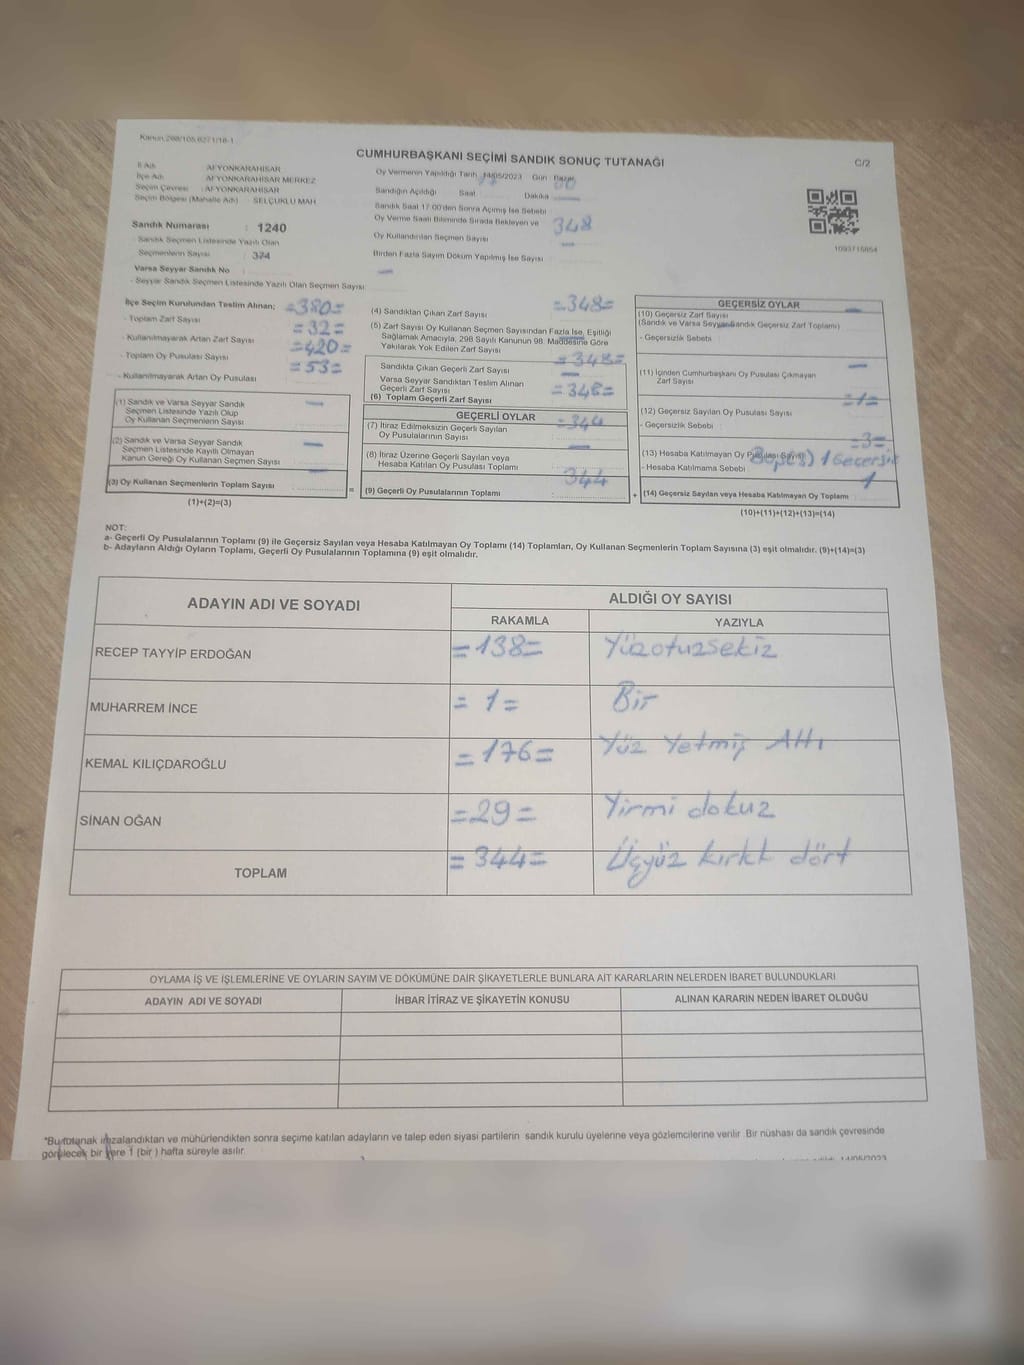 Kanun 298/105 6271/18-1
CUMHURBAŞKANI SEÇİMİ SANDIK SONUÇ TUTANAĞI
C/2
İl Adı : AFYONKARAHİSAR
İlçe Adı : AFYONKARAHİSAR MERKEZ
Seçim Çevresi : AFYONKARAHİSAR
Seçim Bölgesi (Mahalle Adı) : SELÇUKLU MAH
Sandık Numarası : 1240
- Sandık Seçmen Listesinde Yazılı Olan
Seçmenlerin Sayısı : 374
Varsa Seyyar Sandık No
- Seyyar Sandık Seçmen Listesinde Yazılı Olan Seçmen Sayısı
Oy Vermenin Yapıldığı Tarih 14/05/2023 Gün Pazar
Sandığın Açıldığı Saat Dakika
Sandık Saat 17:00'den Sonra Açılmış İse Sebebi
Oy Verme Saati Bitiminde Sırada Bekleyen ve
Oy Kullandırılan Seçmen Sayısı
348
Birden Fazla Sayım Döküm Yapılmış İse Sayısı
1093715854
İlçe Seçim Kurulundan Teslim Alınan; =380=
- Toplam Zarf Sayısı =32=
- Kullanılmayarak Artan Zarf Sayısı =420=
- Toplam Oy Pusulası Sayısı =53=
- Kullanılmayarak Artan Oy Pusulası
(1) Sandık ve Varsa Seyyar Sandık
Seçmen Listesinde Yazılı Olup
Oy Kullanan Seçmenlerin Sayısı
(2) Sandık ve Varsa Seyyar Sandık
Seçmen Listesinde Kayıtlı Olmayan
Kanun Gereği Oy Kullanan Seçmen Sayısı
(3) Oy Kullanan Seçmenlerin Toplam Sayısı
(1)+(2)=(3)
=
(4) Sandıktan Çıkan Zarf Sayısı =348=
(5) Zarf Sayısı Oy Kullanan Seçmen Sayısından Fazla İse, Eşitliği
Sağlamak Amacıyla, 298 Sayılı Kanunun 98. Maddesine Göre
Yakılarak Yok Edilen Zarf Sayısı
=348=
Sandıkta Çıkan Geçerli Zarf Sayısı
Varsa Seyyar Sandıktan Teslim Alınan
Geçerli Zarf Sayısı
=348=
(6) Toplam Geçerli Zarf Sayısı
GEÇERLİ OYLAR
=344=
(7) İtiraz Edilmeksizin Geçerli Sayılan
Oy Pusulalarının Sayısı
(8) İtiraz Üzerine Geçerli Sayılan veya
Hesaba Katılan Oy Pusulası Toplamı
344
(9) Geçerli Oy Pusulalarının Toplamı
+
GEÇERSİZ OYLAR
(10) Geçersiz Zarf Sayısı
(Sandık ve Varsa Seyyar Sandık Geçersiz Zarf Toplamı)
- Geçersizlik Sebebi
(11) İçinden Cumhurbaşkanı Oy Pusulası Çıkmayan
Zarf Sayısı
=1=
(12) Geçersiz Sayılan Oy Pusulası Sayısı
- Geçersizlik Sebebi
=3=
(13) Hesaba Katılmayan Oy Pusulası Sayısı
- Hesaba Katılmama Sebebi
1
(14) Geçersiz Sayılan veya Hesaba Katılmayan Oy Toplamı
(10)+(11)+(12)+(13)=(14)
NOT:
a- Geçerli Oy Pusulalarının Toplamı (9) ile Geçersiz Sayılan veya Hesaba Katılmayan Oy Toplamı (14) Toplamları, Oy Kullanan Seçmenlerin Toplam Sayısına (3) eşit olmalıdır. (9)+(14)=(3)
b- Adayların Aldığı Oyların Toplamı, Geçerli Oy Pusulalarının Toplamına (9) eşit olmalıdır.
ADAYIN ADI VE SOYADI
ALDIĞI OY SAYISI
RAKAMLA YAZIYLA
RECEP TAYYİP ERDOĞAN =138= Yüzotuzsekiz
MUHARREM İNCE = 1 = Bir
KEMAL KILIÇDAROĞLU =176= Yüz Yetmiş Altı
SİNAN OĞAN =29= Yirmi dokuz
TOPLAM =344= Üçyüz kırkt dört
OYLAMA İŞ VE İŞLEMLERİNE VE OYLARIN SAYIM VE DÖKÜMÜNE DAİR ŞİKAYETLERLE BUNLARA AİT KARARLARIN NELERDEN İBARET BULUNDUKLARI
ADAYIN ADI VE SOYADI İHBAR İTİRAZ VE ŞİKAYETİN KONUSU ALINAN KARARIN NEDEN İBARET OLDUĞU
*Bu tutanak imzalandıktan ve mühürlendikten sonra seçime katılan adayların ve talep eden siyasi partilerin sandık kurulu üyelerine veya gözlemcilerine verilir. Bir nüshası da sandık çevresinde
görülecek bir yere 1 (bir) hafta süreyle asılır.
14/05/2023